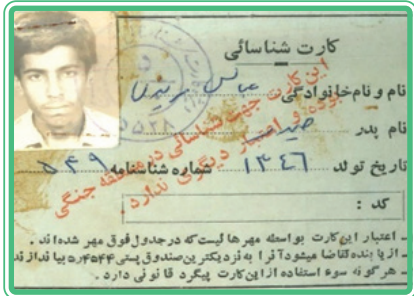 کارت شناسائی
نام و نام خانوادگی عباس
نام پدر
تاریخ تولد ۱۳۴۶ شماره شناسنامه ۵۴۹
کد :
این کارت جهت شناسائی در منطقه جنگی
بوده و اعتبار دیگری ندارد
ـ اعتبار این کارت بواسطه مهرهائیست که در جدول فوق مهر شده‌اند .
ـ از یابنده تقاضا میشود آنرا به نزدیکترین صندوق پستی بیاندازند
ـ هرگونه سوء استفاده از این کارت پیگرد قانونی دارد .